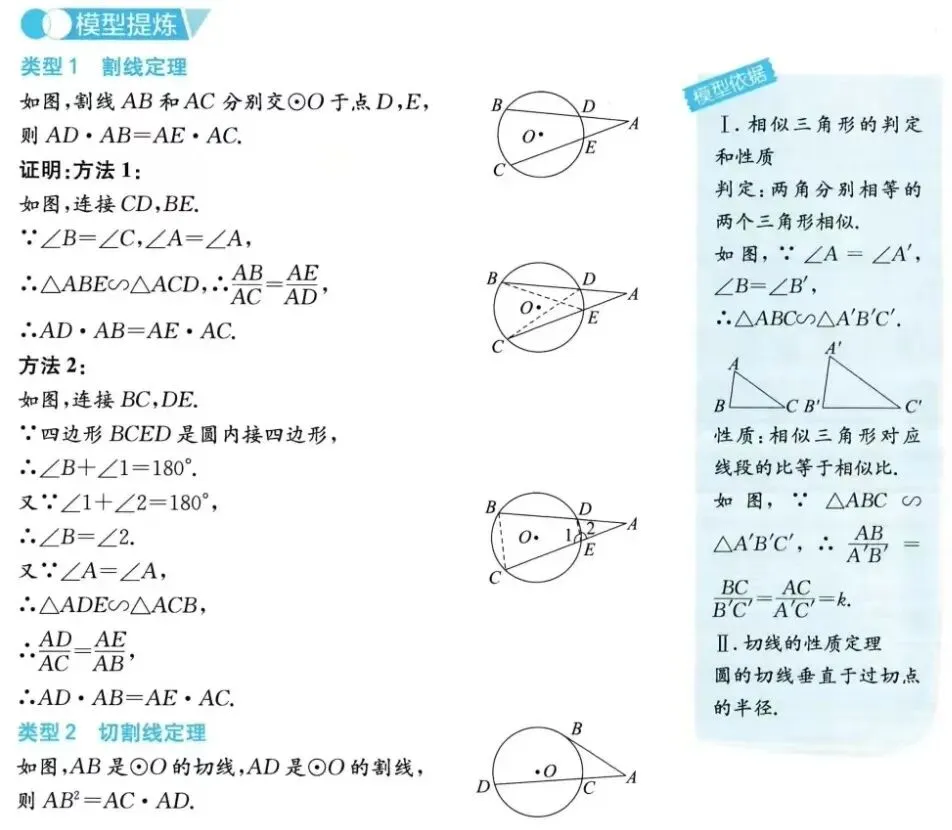 模型提炼
类型1 割线定理
如图,割线AB和AC分别交⊙O于点D,E,
则AD·AB=AE·AC.
证明:方法1:
如图,连接CD,BE.
∵∠B=∠C,∠A=∠A,
∴△ABE∽△ACD,∴AB/AC=AE/AD,
∴AD·AB=AE·AC.
方法2:
如图,连接BC,DE.
∵四边形BCED是圆内接四边形,
∴∠B+∠1=180°.
又∵∠1+∠2=180°,
∴∠B=∠2.
又∵∠A=∠A,
∴△ADE∽△ACB,
∴AD/AC=AE/AB,
∴AD·AB=AE·AC.
类型2 切割线定理
如图,AB是⊙O的切线,AD是⊙O的割线,
则AB²=AC·AD.
B D A
O
E
C
B D A
O
E
C
B D A
O 1 2
E
C
B
O
D C A
模型依据
Ⅰ.相似三角形的判定
和性质
判定:两角分别相等的
两个三角形相似.
如图,∵∠A=∠A′,
∠B=∠B′,
∴△ABC∽△A′B′C′.
A A′
B C B′ C′
性质:相似三角形对应
线段的比等于相似比.
如图,∵△ABC∽
△A′B′C′,∴AB/A′B′=
BC/B′C′=AC/A′C′=k.
Ⅱ.切线的性质定理
圆的切线垂直于过切点
的半径.